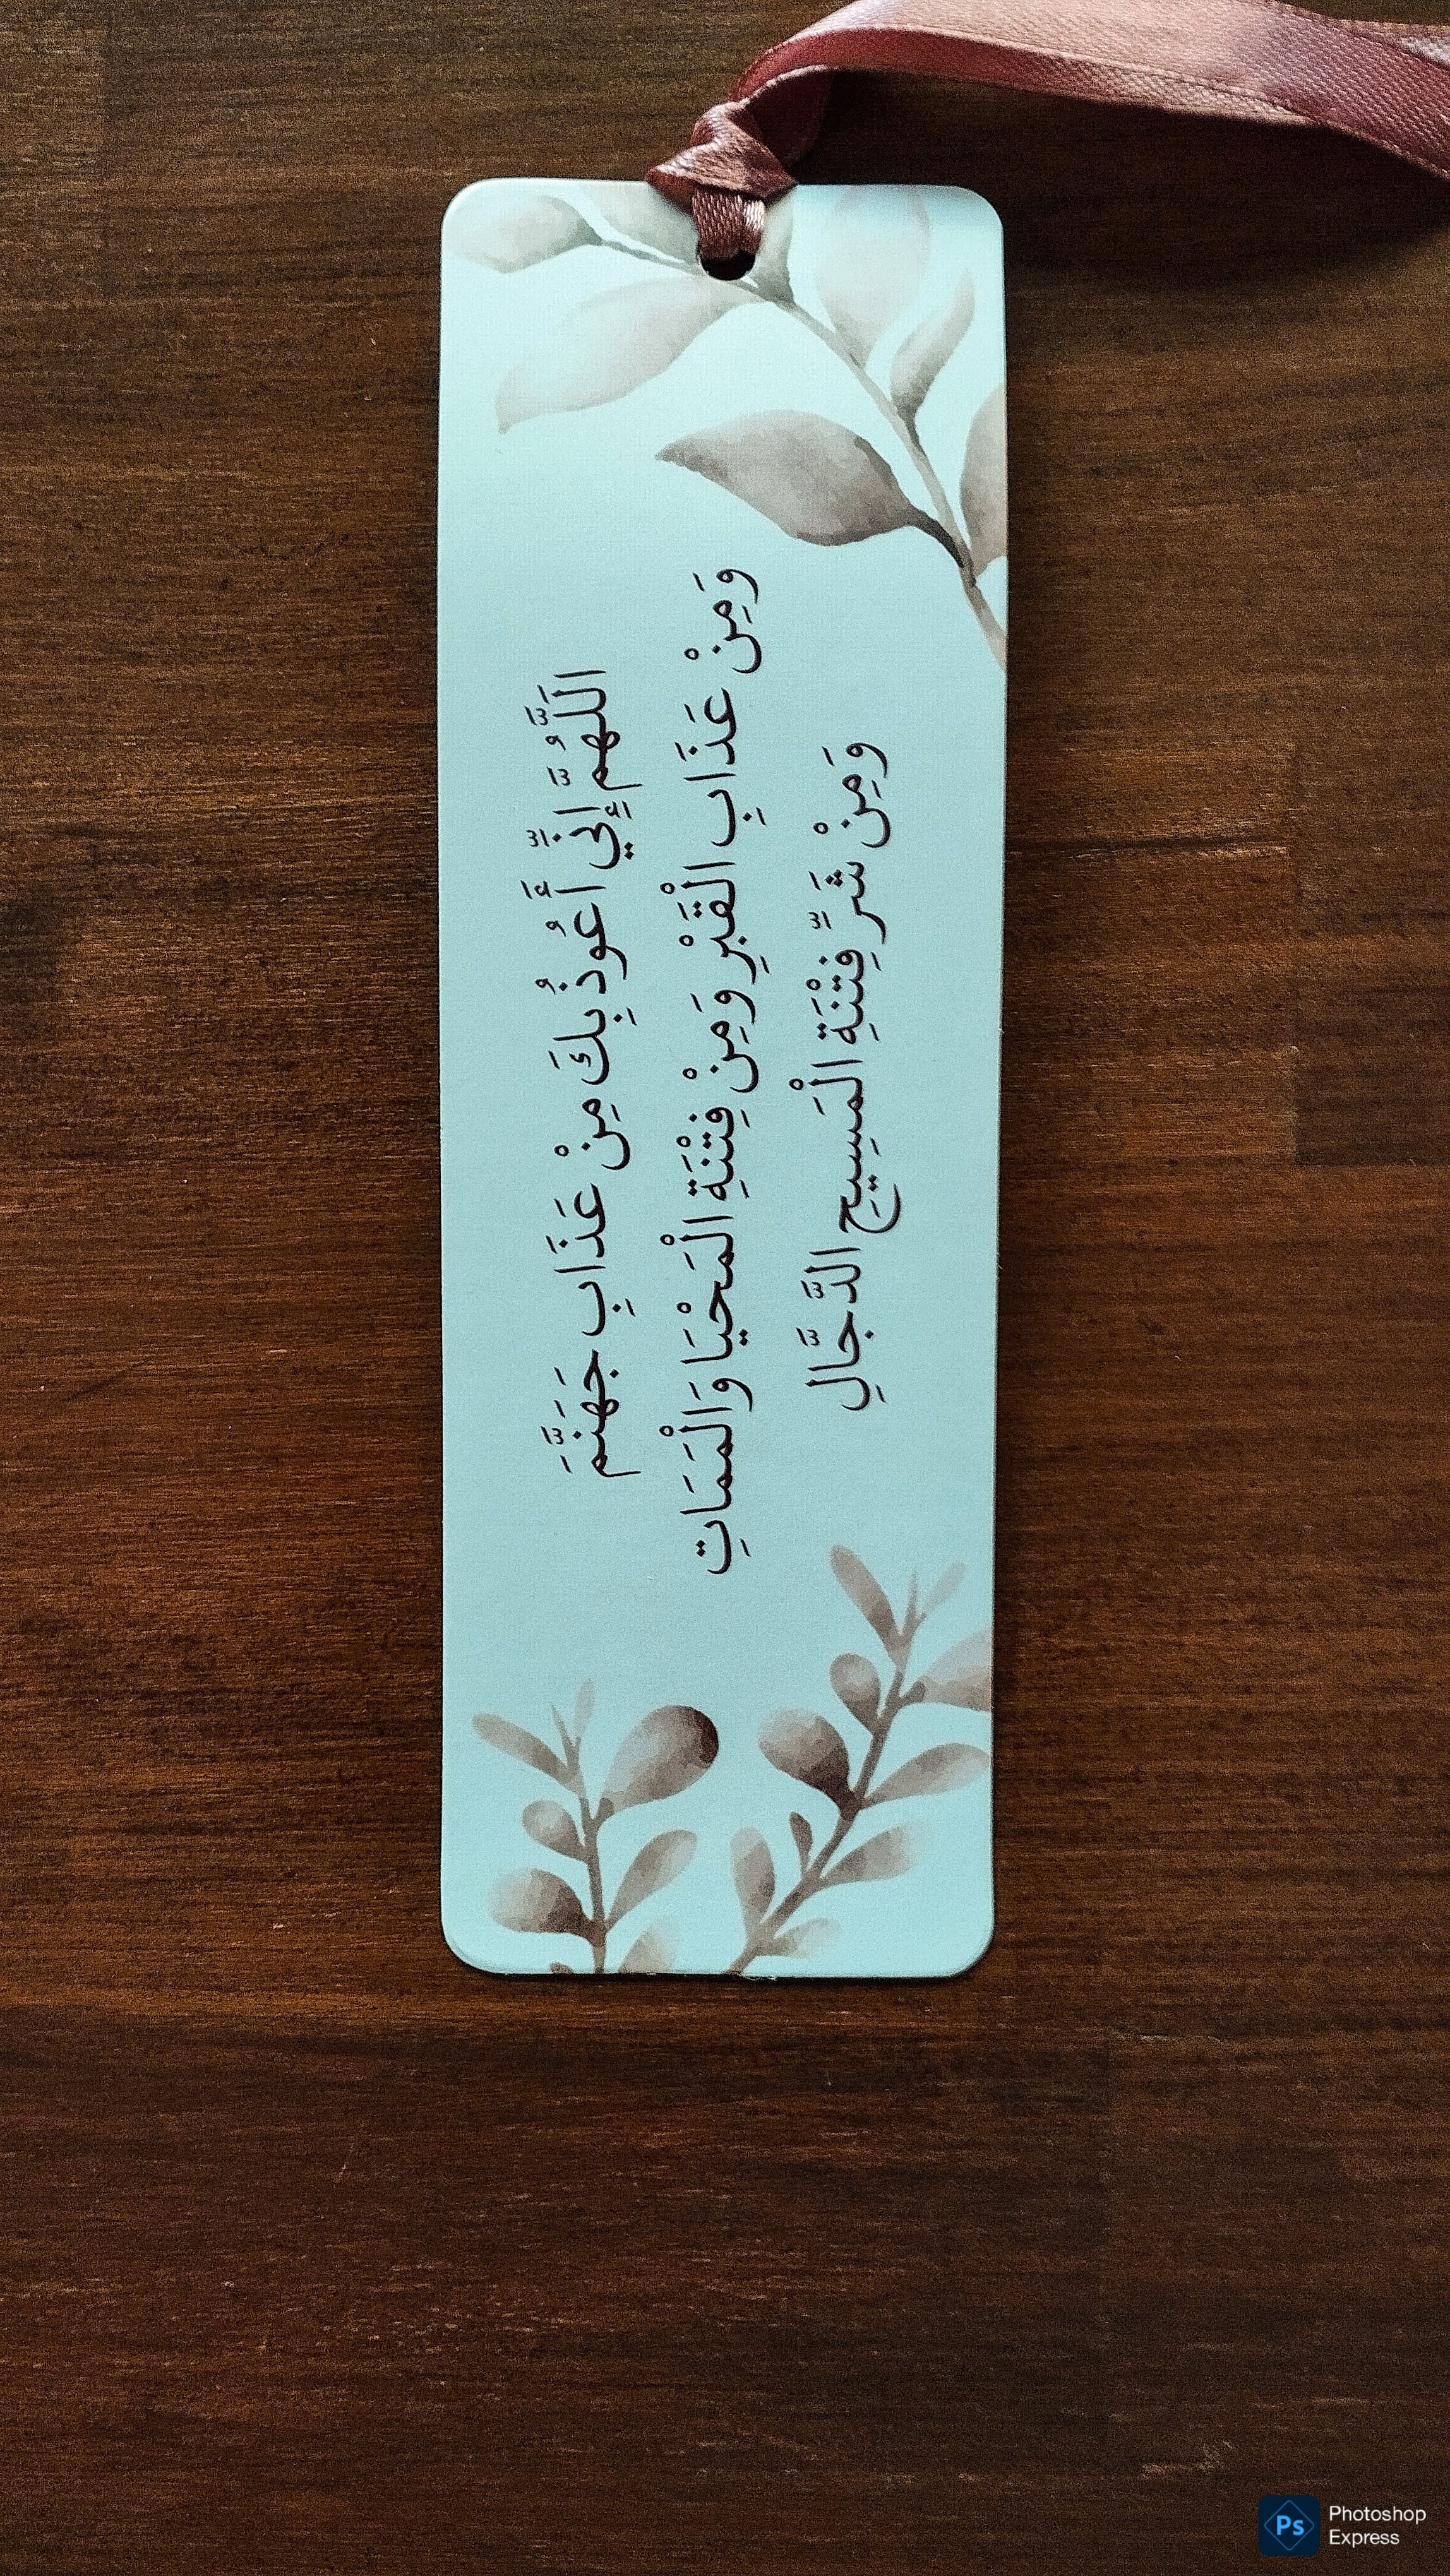 اَللَّهُمَّ إِنِّيْ أَعُوْذُ بِكَ مِنْ عَذَابِ جَهَنَّمَ
وَمِنْ عَذَابِ الْقَبْرِ وَمِنْ فِتْنَةِ الْمَحْيَا وَالْمَمَاتِ
وَمِنْ شَرِّ فِتْنَةِ الْمَسِيحِ الدَّجَّالِ
Ps Photoshop
Express